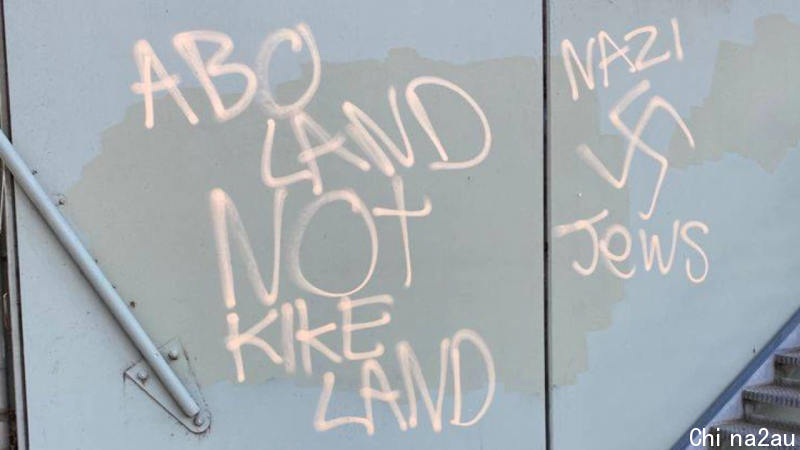 ABO
LAND
NOt
KIKE
LAND
NAZI
Jews
Chi na2au